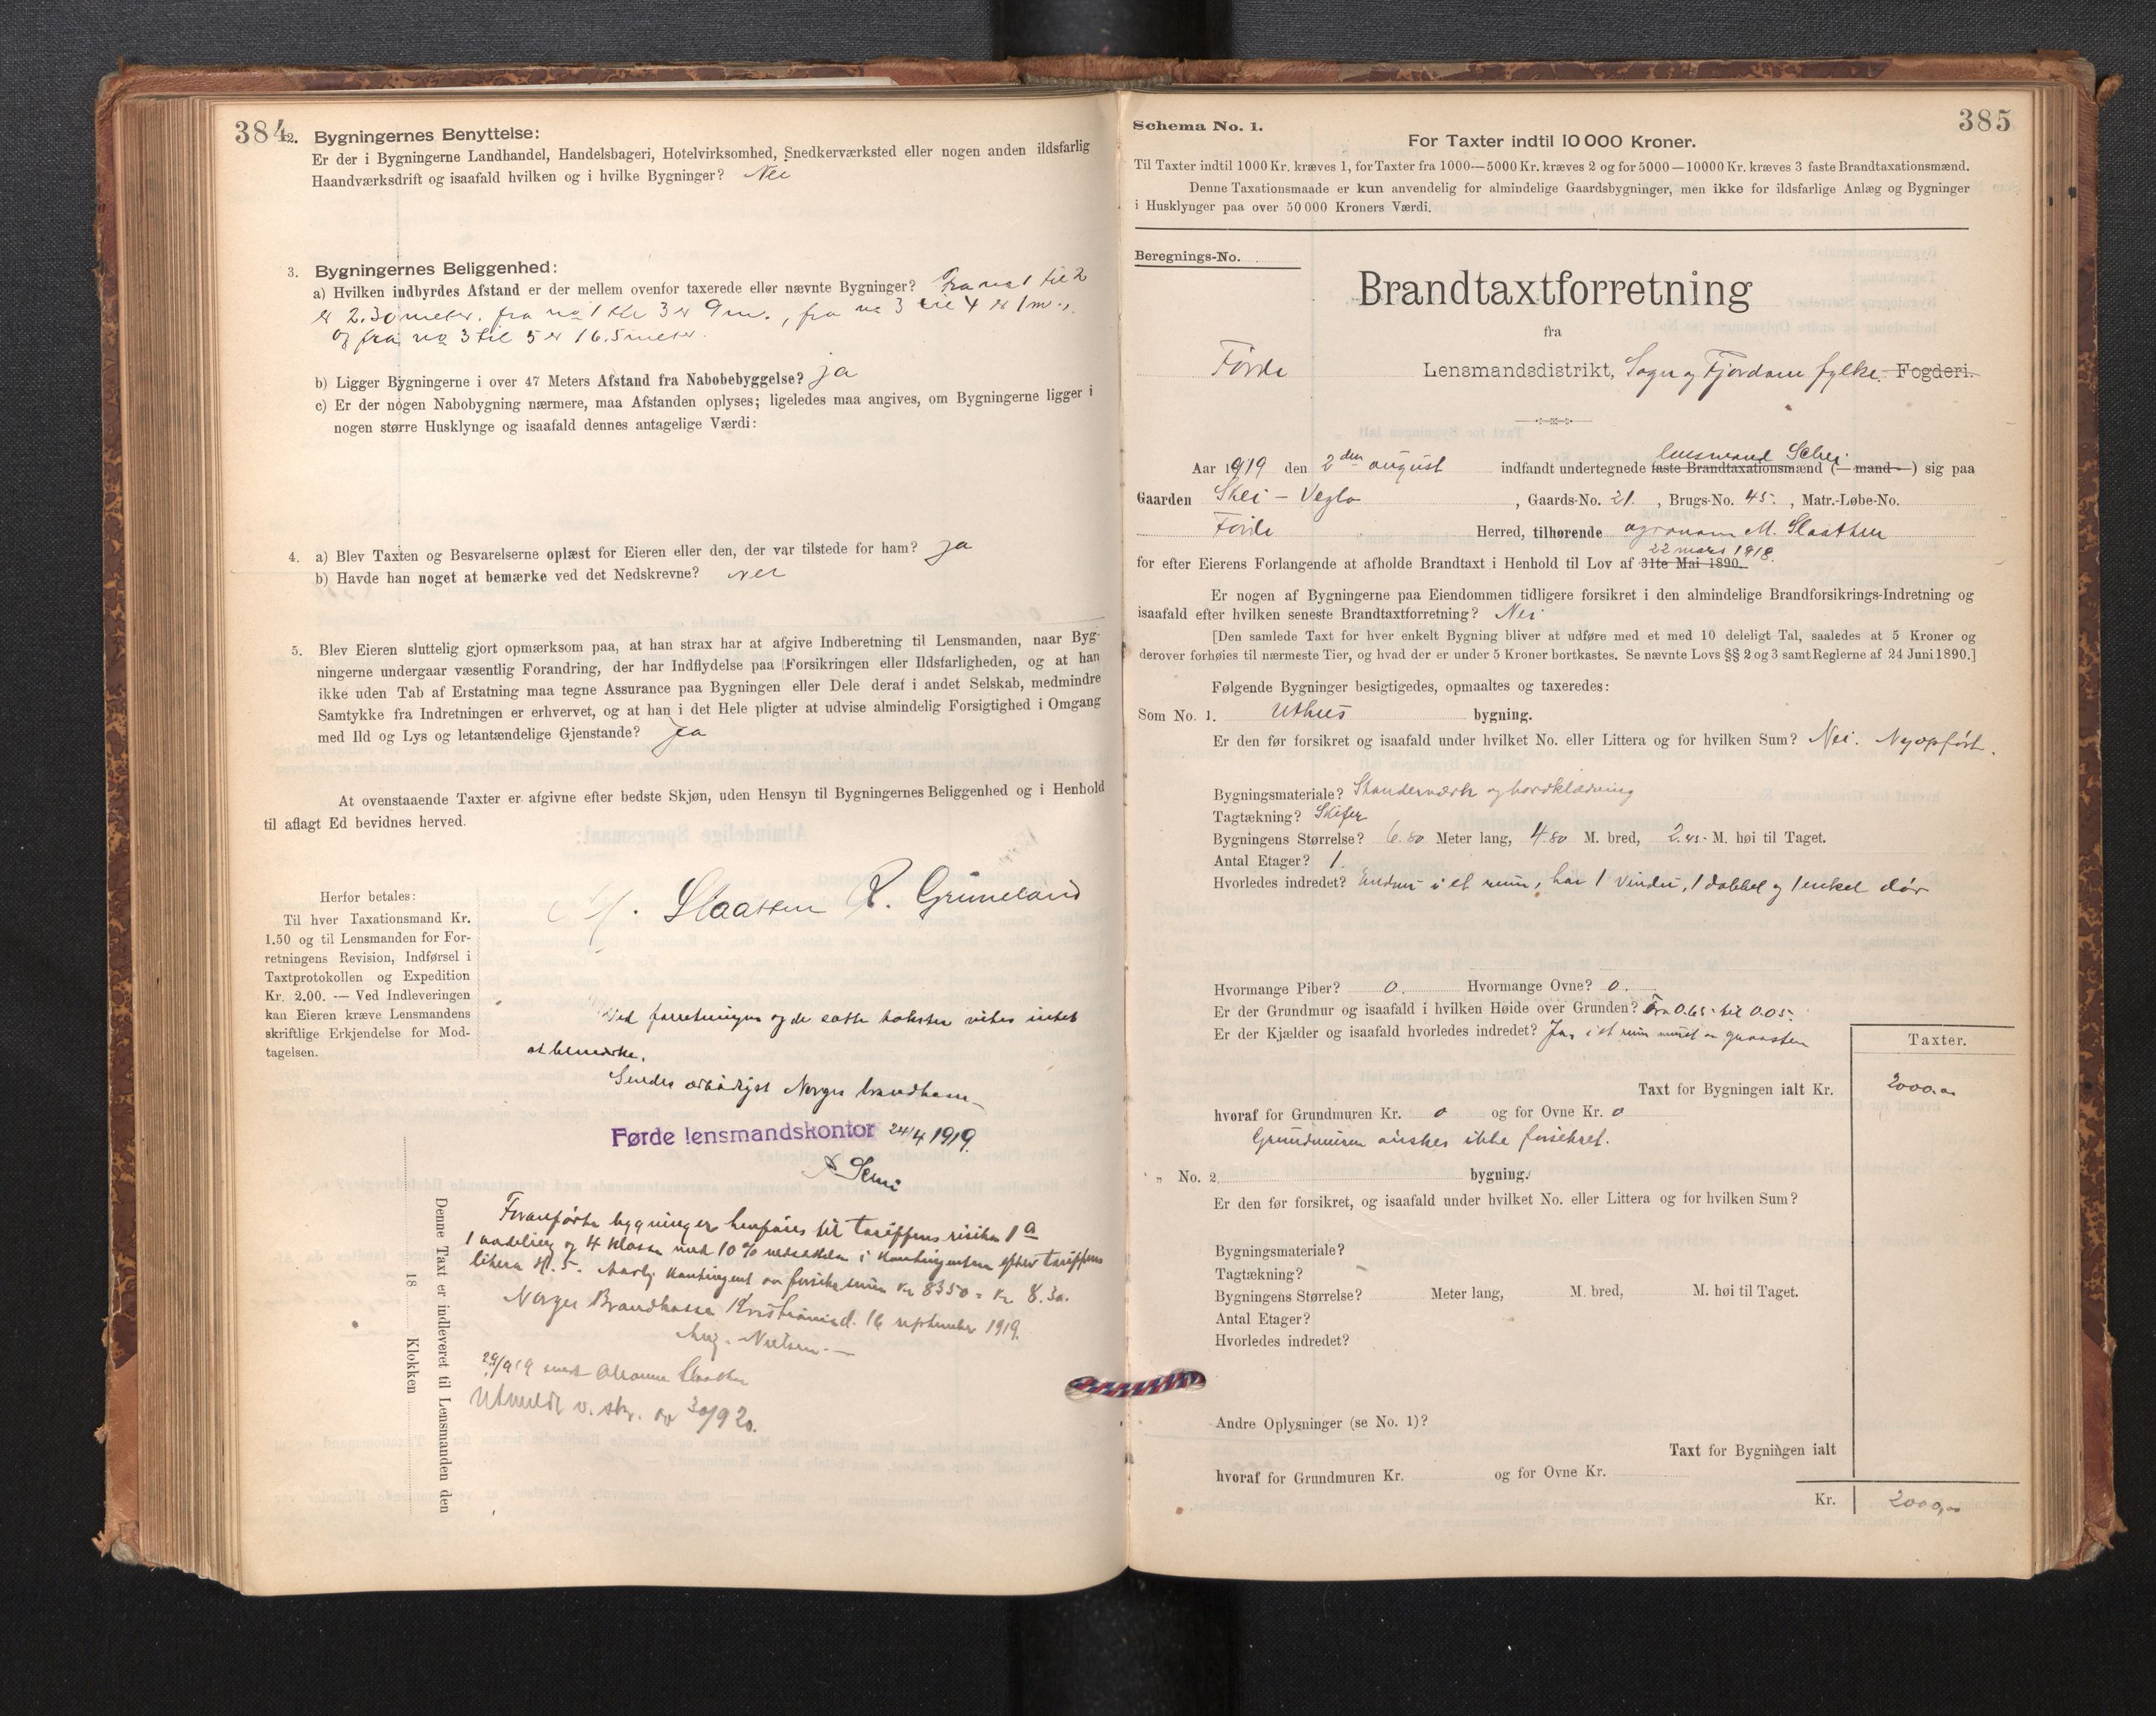 384
2. Bygningernes Benyttelse:
Er der i Bygningerne Landhandel, Handelsbageri, Hotelvirksomhed, Snedkerværksted eller nogen anden ildsfarlig
Haandværksdrift og isaafald hvilken og i hvilke Bygninger? Nei
3. Bygningernes Beliggenhed:
a) Hvilken indbyrdes Afstand er der mellem ovenfor taxerede eller nævnte Bygninger? Fra no 1 til 2
er 2.30 meter. fra no 1 til 3 er 9 m., fra no 3 til 4 er 1 m.,
og fra no 3 til 5 er 16.5 meter.
b) Ligger Bygningerne i over 47 Meters Afstand fra Nabobebyggelse? ja
c) Er der nogen Nabobygning nærmere, maa Afstanden oplyses; ligeledes maa angives, om Bygningerne ligger i
nogen større Husklynge og isaafald dennes antagelige Værdi:
4. a) Blev Taxten og Besvarelserne oplæst for Eieren eller den, der var tilstede for ham? ja
b) Havde han noget at bemærke ved det Nedskrevne? nei
5. Blev Eieren sluttelig gjort opmærksom paa, at han strax har at afgive Indberetning til Lensmanden, naar Byg-
ningerne undergaar væsentlig Forandring, der har Indflydelse paa Forsikringen eller Ildsfarligheden, og at han
ikke uden Tab af Erstatning maa tegne Assurance paa Bygningen eller Dele deraf i andet Selskab, medmindre
Samtykke fra Indretningen er erhvervet, og at han i det Hele pligter at udvise almindelig Forsigtighed i Omgang
med Ild og Lys og letantændelige Gjenstande? Ja
At ovenstaaende Taxter er afgivne efter bedste Skjøn, uden Hensyn til Bygningernes Beliggenhed og i Henhold
til aflagt Ed bevidnes herved.
M. Slaatten R. Gruneland
Herfor betales:
Til hver Taxationsmand Kr.
1.50 og til Lensmanden for For-
retningens Revision, Indførsel i
Taxtprotokollen og Expedition
Kr. 2.00. — Ved Indleveringen
kan Eieren kræve Lensmandens
skriftlige Erkjendelse for Mod-
tagelsen.
Ved forretningen og de satte takster vites intet
at bemerke.
Sendes ærbødigst Norges brandkasse
Førde lensmandskontor 24/4 1919.
Denne Taxt er indleveret til Lensmanden den
18 Klokken
Foranførte bygninger henføres til tariffens risiko 1 a
1 avdeling og 4 klasse med 10 % nedsættelse i kontingenten efter tariffens
litera H. 5. Aarlig kontingent av forsikr.sum kr 8350 = kr 8.30.
Norges Brandkasse Kristiania d. 16 september 1919.
Aug. Nielsen
29/9 19 sendt Slaatten
Utmeldt v. skr. av 30/9 20.
385
Schema No. 1.
For Taxter indtil 10 000 Kroner.
Til Taxter indtil 1000 Kr. kræves 1, for Taxter fra 1000—5000 Kr. kræves 2 og for 5000—10000 Kr. kræves 3 faste Brandtaxationsmænd.
Denne Taxationsmaade er kun anvendelig for almindelige Gaardsbygninger, men ikke for ildsfarlige Anlæg og Bygninger
i Husklynger paa over 50 000 Kroners Værdi.
Beregnings-No.
Brandtaxtforretning
fra
Førde Lensmandsdistrikt, Sogn og Fjordane fylke. Fogderi.
lensmand Schei
Aar 1919 den 2den august indfandt undertegnede faste Brandtaxationsmænd (— mand —) sig paa
Gaarden Skei - Vegto, Gaards-No. 21., Brugs-No. 45., Matr.-Løbe-No.
Førde Herred, tilhørende agronom M. Slaatten
22 mars 1918.
for efter Eierens Forlangende at afholde Brandtaxt i Henhold til Lov af 31te Mai 1890.
Er nogen af Bygningerne paa Eiendommen tidligere forsikret i den almindelige Brandforsikrings-Indretning og
isaafald efter hvilken seneste Brandtaxtforretning? Nei
[Den samlede Taxt for hver enkelt Bygning bliver at udføre med et med 10 deleligt Tal, saaledes at 5 Kroner og
derover forhøies til nærmeste Tier, og hvad der er under 5 Kroner bortkastes. Se nævnte Lovs §§ 2 og 3 samt Reglerne af 24 Juni 1890.]
Følgende Bygninger besigtigedes, opmaaltes og taxeredes:
Som No. 1. Uthus bygning.
Er den før forsikret og isaafald under hvilket No. eller Littera og for hvilken Sum? Nei. Nyopført.
Bygningsmateriale? Standerværk og bordklædning
Tagtækning? Skifer
Bygningens Størrelse? 6.80 Meter lang, 4.80 M. bred, 2.45 M. høi til Taget.
Antal Etager? 1.
Hvorledes indredet? i et rum, har 1 vindu, 1 dobbel og 1 enkel dør
Hvormange Piber? 0. Hvormange Ovne? 0.
Er der Grundmur og isaafald i hvilken Høide over Grunden? Fra 0.65 til 0.05.
Er der Kjælder og isaafald hvorledes indredet? Ja, i et rum muret av graasten
Taxter.
Taxt for Bygningen ialt Kr. 2000,00
hvoraf for Grundmuren Kr. 0 og for Ovne Kr. 0
Grundmuren ønskes ikke forsikret.
„ No. 2 bygning.
Er den før forsikret, og isaafald under hvilket No. eller Littera og for hvilken Sum?
Bygningsmateriale?
Tagtækning?
Bygningens Størrelse? Meter lang, M. bred, M. høi til Taget.
Antal Etager?
Hvorledes indredet?
Andre Oplysninger (se No. 1)?
Taxt for Bygningen ialt
hvoraf for Grundmuren Kr. og for Ovne Kr.
Kr. 2000,00